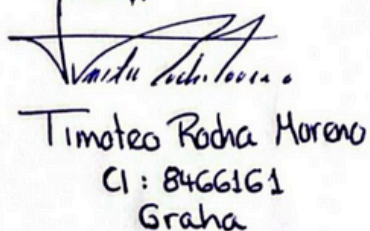 Timoteo Rocha Moreno
CI: 8466161
Graha